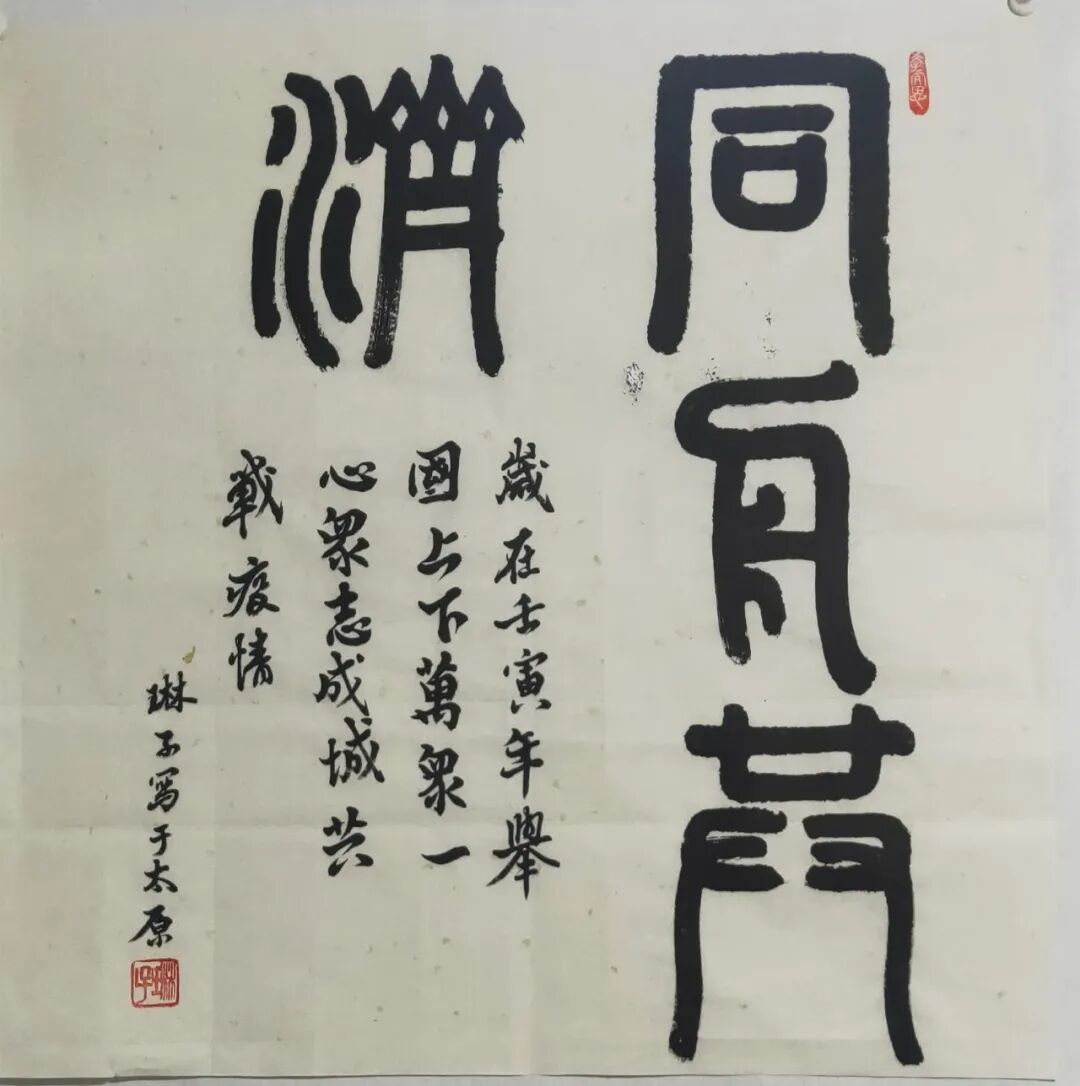 同舟共
濟
歲在壬寅年舉
國上下萬衆一
心衆志成城共
戰疫情
琳子寫于太原
琳子